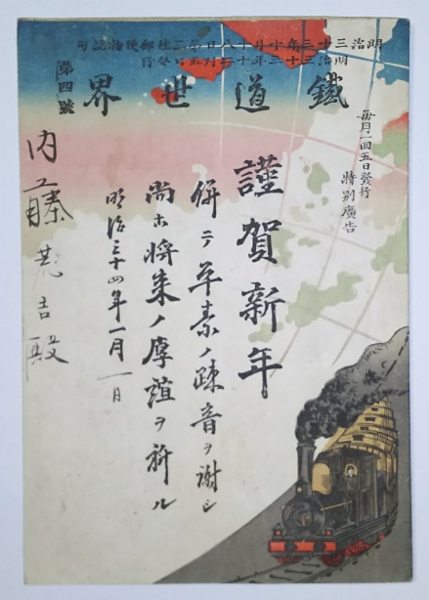 明治三十三年十月十八日第三種郵便物認可
鐵道世界
第四號
毎月一回五日發行
特別廣告
謹賀新年
併テ平素ノ疎音ヲ謝シ
尚ホ將来ノ厚誼ヲ祈ル
明治三十四年一月一日
内藤吉殿